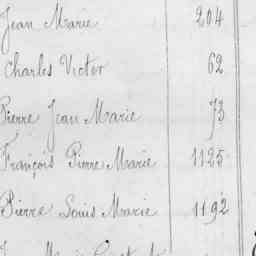 Jean Marie 204
Charles Victor 62
Pierre Jean Marie 73
François Pierre Marie 1125
Pierre Louis Marie 1192